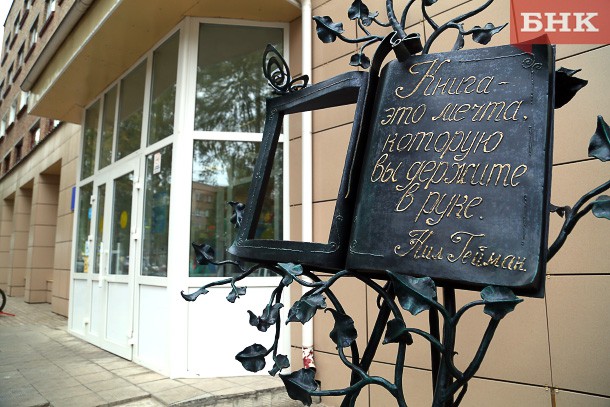 БНК
Книга-
это мечта,
которую
вы держите
в руке.
Нил Гейман.